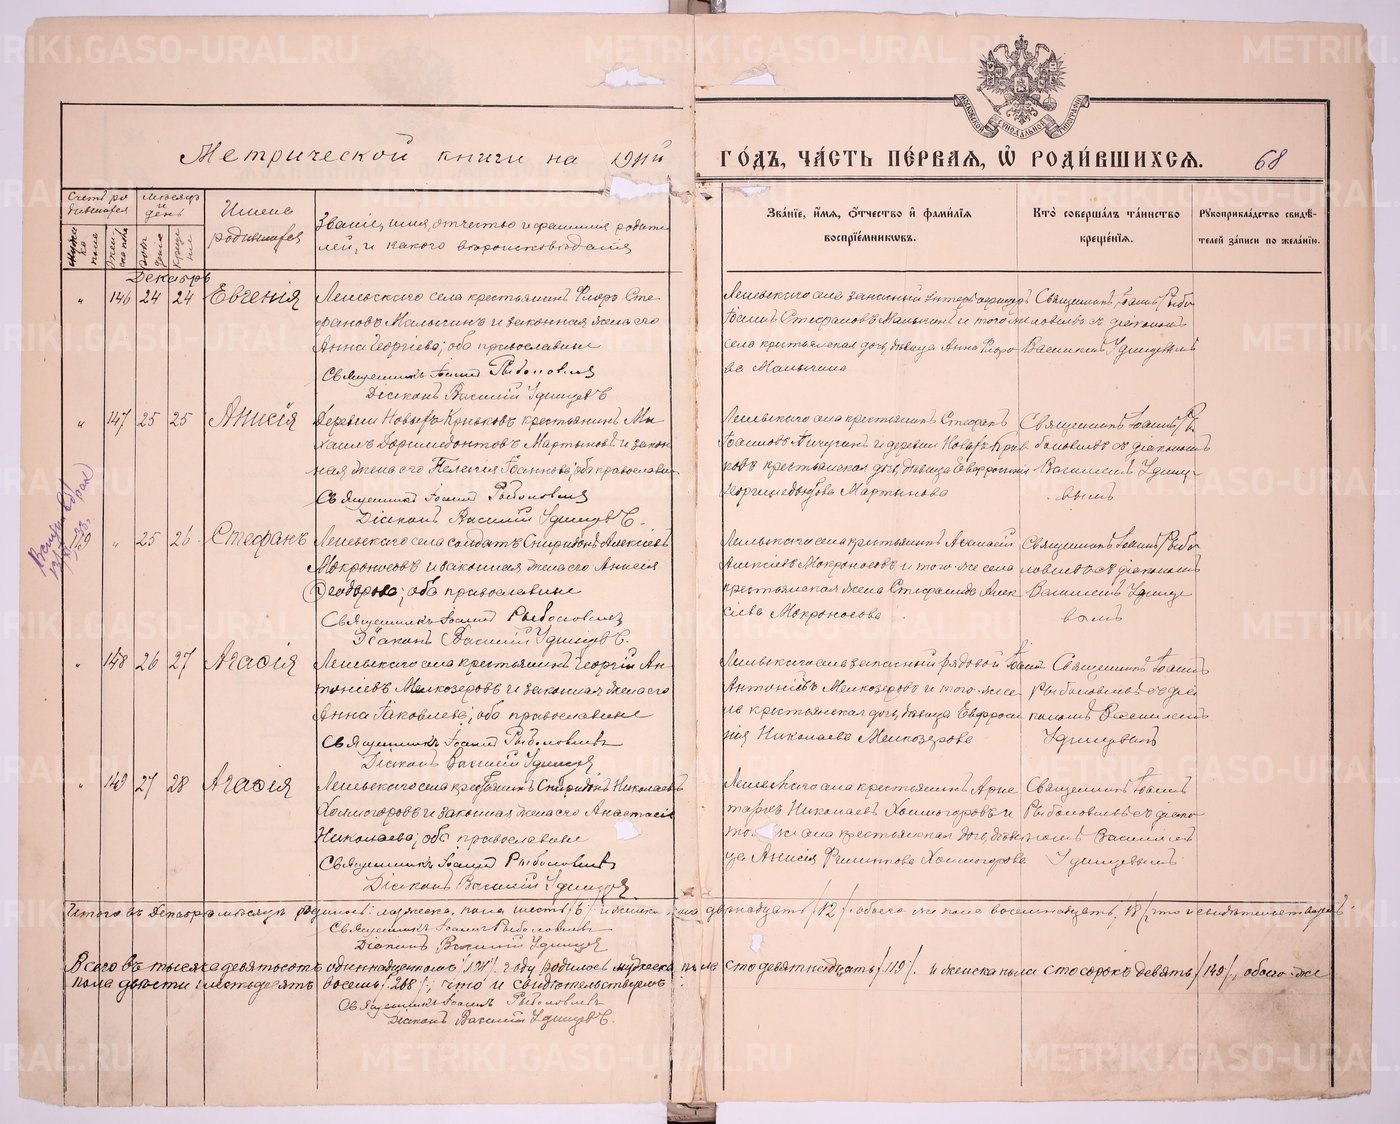 METRIKI.GASO-URAL.RU
МОСКОВСКОЙ СѴНОДАЛЬНОЙ ТИПОГРАФІИ
Метрической книги на 1911й
ГО́ДЪ, ЧА́СТЬ ПЕ́РВАЯ, Ѡ҆ РОДИ́ВШИХСЯ.
68
Счетъ ро
дившихся
Мужеска пола
Женска пола
Мѣсяцъ и день
рожденія
крещенія
Имена родившихся
Званіе, имя, отчество и фамилія родите
лей, и какого вѣроисповѣданія
Зва́ніе, и҆́мя, ѻ҆́тчество и҆ фами́лія
воспріе́мниковъ.
Кто̀ соверша́лъ та́инство
креще́нія.
Рꙋкоприкла́дство свидѣ́-
телей за́писи по жела́нію.
Декабрь
„ 146 24 24 Евгенія
Лельского села крестьянинъ Флоръ Сте
фановъ Малыгинъ и законная жена его
Анна Георгіева; оба православные
Священникъ Іоаннъ Рыболовлевъ
Діаконъ Василій Удинцевъ
Іоаннъ Стефановъ Малыгинъ и того же
села крестьянская дочь, дѣвица Анна Флоро
ва Малыгина
Священникъ Іоаннъ Рыбо
ловлевъ съ діакономъ
Василіемъ Удинцевымъ
„ 147 25 25 Анисія
Деревни Новыхъ Крюковъ крестьянинъ Ми
хаилъ Доримедонтовъ Мартыновъ и закон
ная жена его Пелагія Іоаннова; оба православные
Священникъ Іоаннъ Рыболовлевъ
Діаконъ Василій Удинцевъ.
крестьянинъ Стефанъ
Іоанновъ Пичугинъ и деревни Новыхъ Крю
ковъ крестьянская дочь, дѣвица Евфросинія
Мартынова
Священникъ Іоаннъ Ры
боловлевъ съ діакономъ
Василіемъ Удинце
вымъ
59 „ 25 26 Стефанъ
Лельского села солдатъ Спиридонъ Алексѣевъ
Мокроносовъ и законная жена его Анисія
Ѳеодорова; оба православные
Священникъ Іоаннъ Рыболовлевъ
Діаконъ Василій Удинцевъ.
крестьянинъ Аѳанасій
Алексѣевъ Мокроносовъ и того же села
крестьянская жена Стефанида Алек
сіева Мокроносова
Священникъ Іоаннъ Рыбо
ловлевъ съ діакономъ
Василіемъ Удинце
вымъ
„ 148 26 27 Агаѳія
Лельского села крестьянинъ Георгій Ан
тоніевъ Мелкозеровъ и законная жена его
Анна Іаковлева; оба православные
Священникъ Іоаннъ Рыболовлевъ
Діаконъ Василій Удинцевъ
села запасный рядовой Іоаннъ
Антоніевъ Мелкозеровъ и того же
крестьянская дочь, дѣвица Евфроси
нія Николаева Мелкозерова
Священникъ Іоаннъ
Рыболовлевъ съ діа
кономъ Василіемъ
Удинцевымъ
„ 149 27 28 Агаѳія
Лельского села крестьянинъ Спиридонъ Николаевъ
Холмогоровъ и законная жена его Анастасія
Николаева; оба православные
Священникъ Іоаннъ Рыболовлевъ
Діаконъ Василій Удинцевъ
Николаевъ Холмогоровъ и
того же села крестьянская дочь, дѣви
ца Анисія Филиппова Холмогорова
Священникъ Іоаннъ
Рыболовлевъ съ діако
номъ Василіемъ
Удинцевымъ
Итого въ Декабрѣ мѣсяцѣ родилось: мужеска пола шесть /6/ и женска пола двѣнадцать /12/ обоего же пола восемнадцать, 18/, что и свидѣтельствуемъ.
Священникъ Іоаннъ Рыболовлевъ
Діаконъ Василій Удинцевъ
Всего въ тысяча девятьсотъ одиннадцатомъ /1911/ году родилось мужеска пола сто девятнадцать /119/ и женска пола сто сорокъ девять /149/, обоего же
пола двѣсти шестьдесятъ восемь /268/, что и свидѣтельствуемъ:
Священникъ Іоаннъ Рыболовлевъ
Діаконъ Василій Удинцевъ.